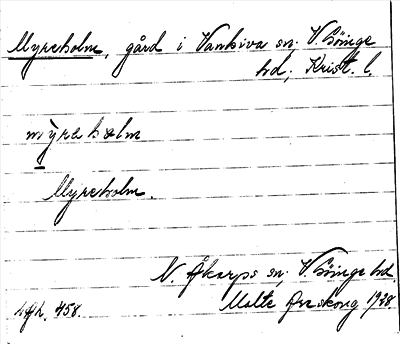 Myreholm, gård i Vankiva sn; V. Göinge
hd; Krist. l.
myreholm
Myreholm.
N. Åkarps sn; V. Göinge hd.
458. Malte Areskoug 1928.